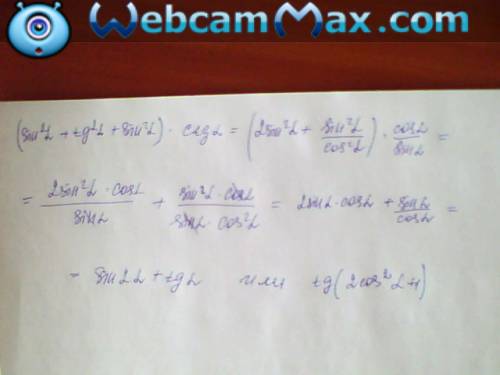 WebcamMax.com
(sin²α + tg²α + sin²α) · ctgα = (2sin²α + sin²α/cos²α) · cosα/sinα =
= 2sin²α · cosα/sinα + sin²α · cosα/sinα · cos²α = 2sinα · cosα + sinα/cosα =
= sin2α + tgα или tg(2cos²α+1)